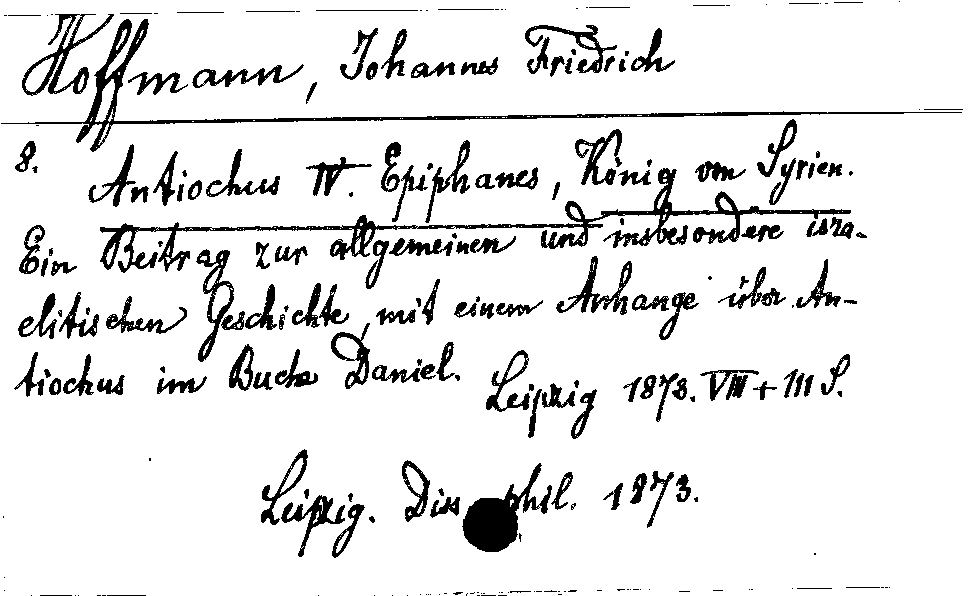 Hoffmann, Johannes Friedrich
8.
Antiochus IV. Epiphanes, König von Syrien.
Ein Beitrag zur allgemeinen und insbesondere isra-
elitischen Geschichte, mit einem Anhange über An-
tiochus im Buche Daniel.
Leipzig 1873. VIII + 111 S.
Leipzig. Diss. phil. 1873.